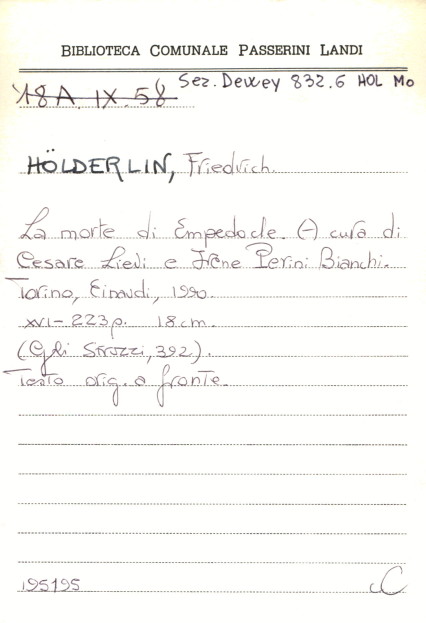 BIBLIOTECA COMUNALE PASSERINI LANDI
Sez. Dewey 832.6 HOL Mo
18A IX. 58
HÖLDERLIN, Friedrich.
La morte di Empedocle. (-) cura di
Cesare Lievi e Irene Perini Bianchi.
Torino, Einaudi, 1990.
XVI-223p. 18cm.
(Gli Struzzi, 392).
Testo orig. a fronte.
195195
C